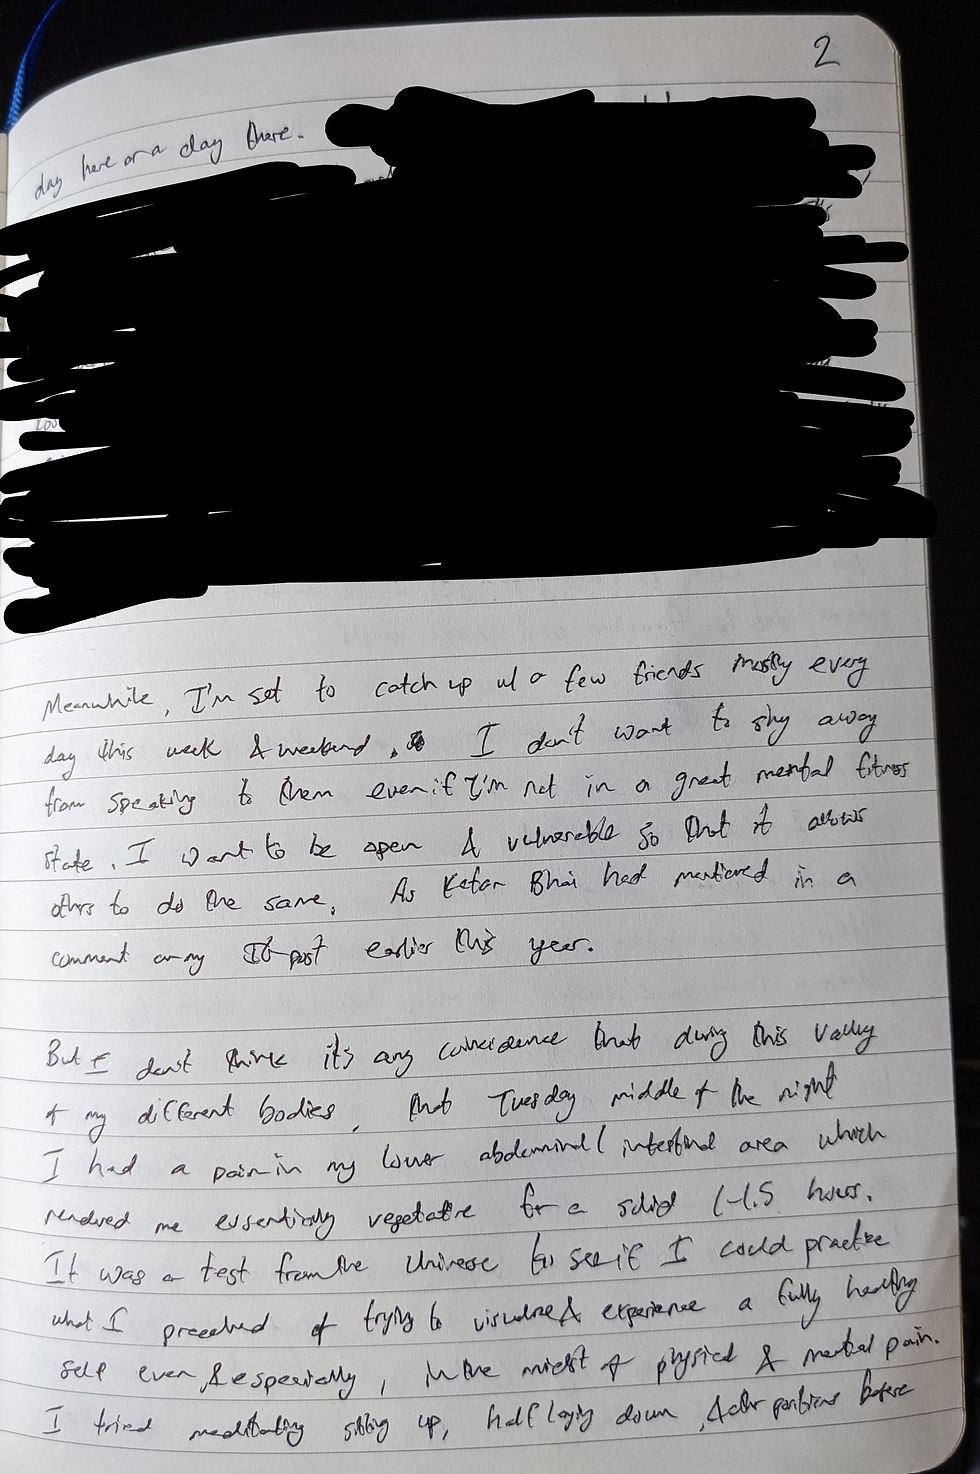 2
day here or a day there.
Meanwhile, I'm set to catch up w/ a few friends mostly every
day this week & weekend. I don't want to shy away
from speaking to them even if I'm not in a great mental fitness
state. I want to be open & vulnerable so that it allows
others to do the same. As Ketan Bhai had mentioned in a
comment on my post earlier this year.
But I don't think it's any coincidence that during this valley
of my different bodies, that Tuesday middle of the night
I had a pain in my lower abdominal/intestinal area which
rendered me essentially vegetative for a solid 1-1.5 hours.
It was a test from the Universe to see if I could practice
what I preached of trying to visualize & experience a fully healthy
self even, & especially, in the midst of physical & mental pain.
I tried meditating sitting up, half laying down, & other positions before